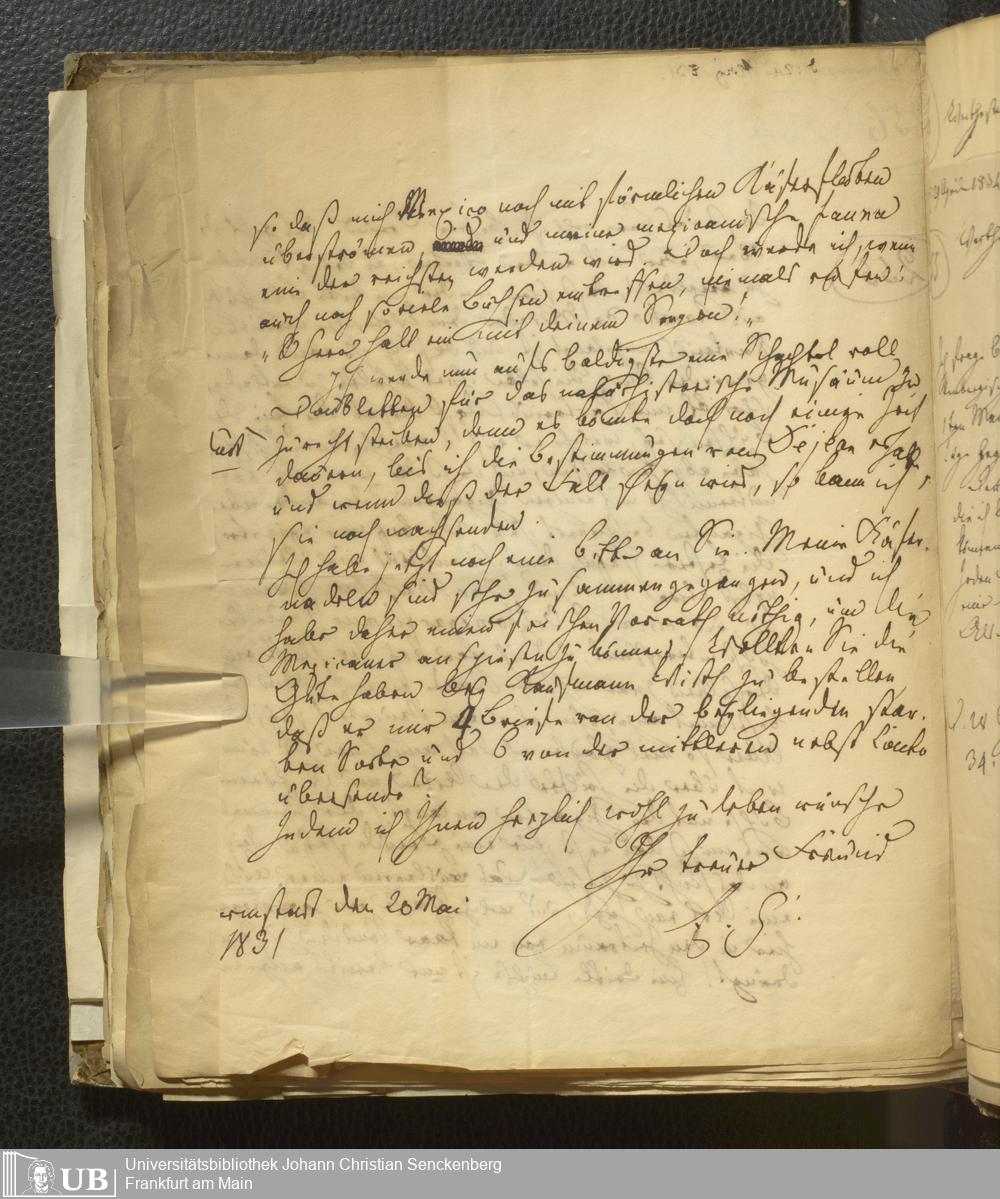 so daß mich Mexico noch mit förmlichen Käferfluthen
überströmen, und meine mexicanische Fauna
eine der reichsten werden wird. Doch werde ich, wenn
auch noch soviele Büchsen eintreffen, niemals rufen:
„O Herr halt ein mit deinem Seegen!"
Ich werde nun aufs baldigste eine Schachtel voll
Doubletten für das naturhistorische Musäum zu
zurecht stecken, denn es könnte doch noch einige Zeit
dauern, bis ich die Bestimmungen von Dejean erhalte,
und wenn dieß der Fall seyn wird, so kann ich
sie noch nachsenden.
Ich habe jetzt noch eine Bitte an Sie. Meine Käfer-
nadeln sind sehr zusammengegangen, und ich
habe daher einen frischen Vorrath nöthig, um die
Mexicaner anspießen zu können. Wollten Sie die
Güte haben bey Kaufmann zu bestellen
daß er mir 4 Briefe von der beyliegenden star-
ken Sorte und 6 von der mittleren nebst Conto
übersende?
Indem ich Ihnen herzlich wohl zu leben wünsche
Ihr treuer Freund
den 20 Mai
1831
April 1831
34
UB
Universitätsbibliothek Johann Christian Senckenberg
Frankfurt am Main